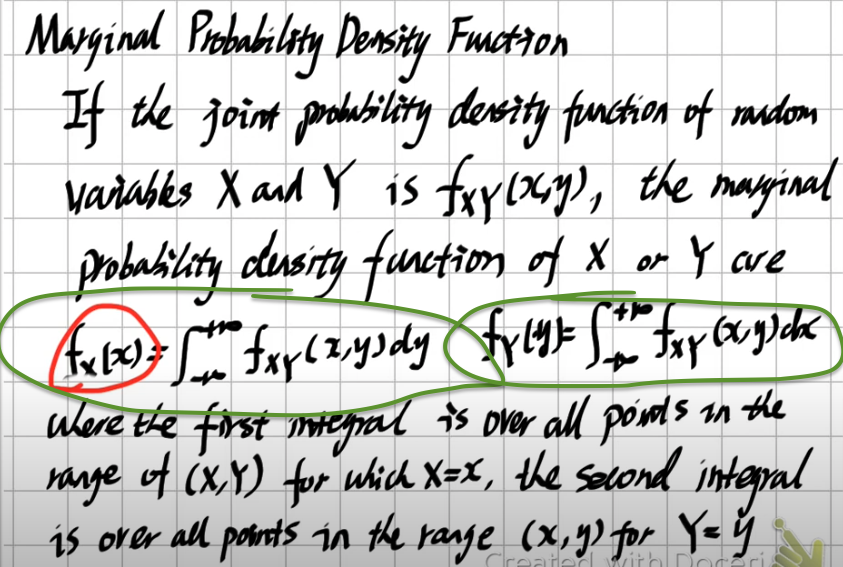 Marginal Probability Density Function
If the joint probability density function of random
variables X and Y is fXY(x,y), the marginal
probability density function of X or Y are
fX(x)=∫-∞+∞ fXY(x,y)dy fY(y)=∫-∞+∞ fXY(x,y)dx
where the first integral is over all points in the
range of (X,Y) for which X=x, the second integral
is over all points in the range (x,y) for Y=y
Created with Doceri